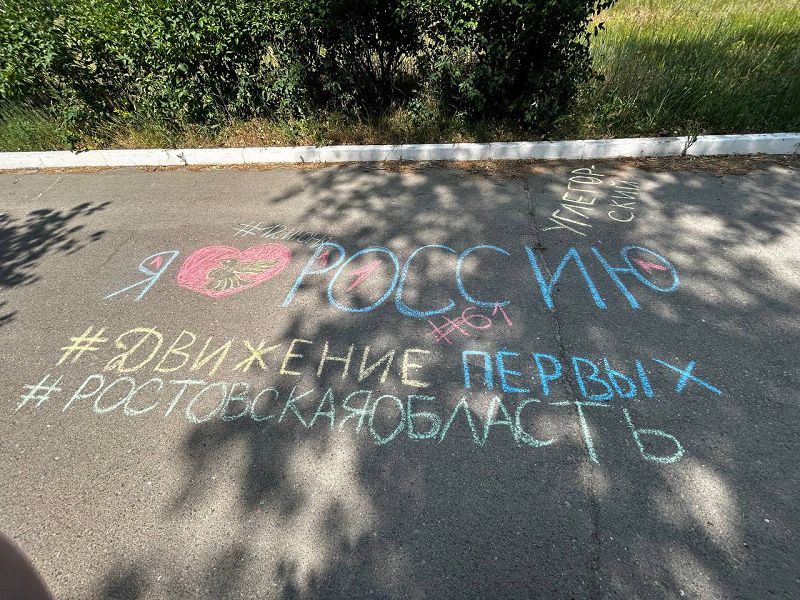 УГЛЕГОР-
СКИЙ
Я РОССИЮ
#61
#ДВИЖЕНИЕ ПЕРВЫХ
#РОСТОВСКАЯОБЛАСТЬ